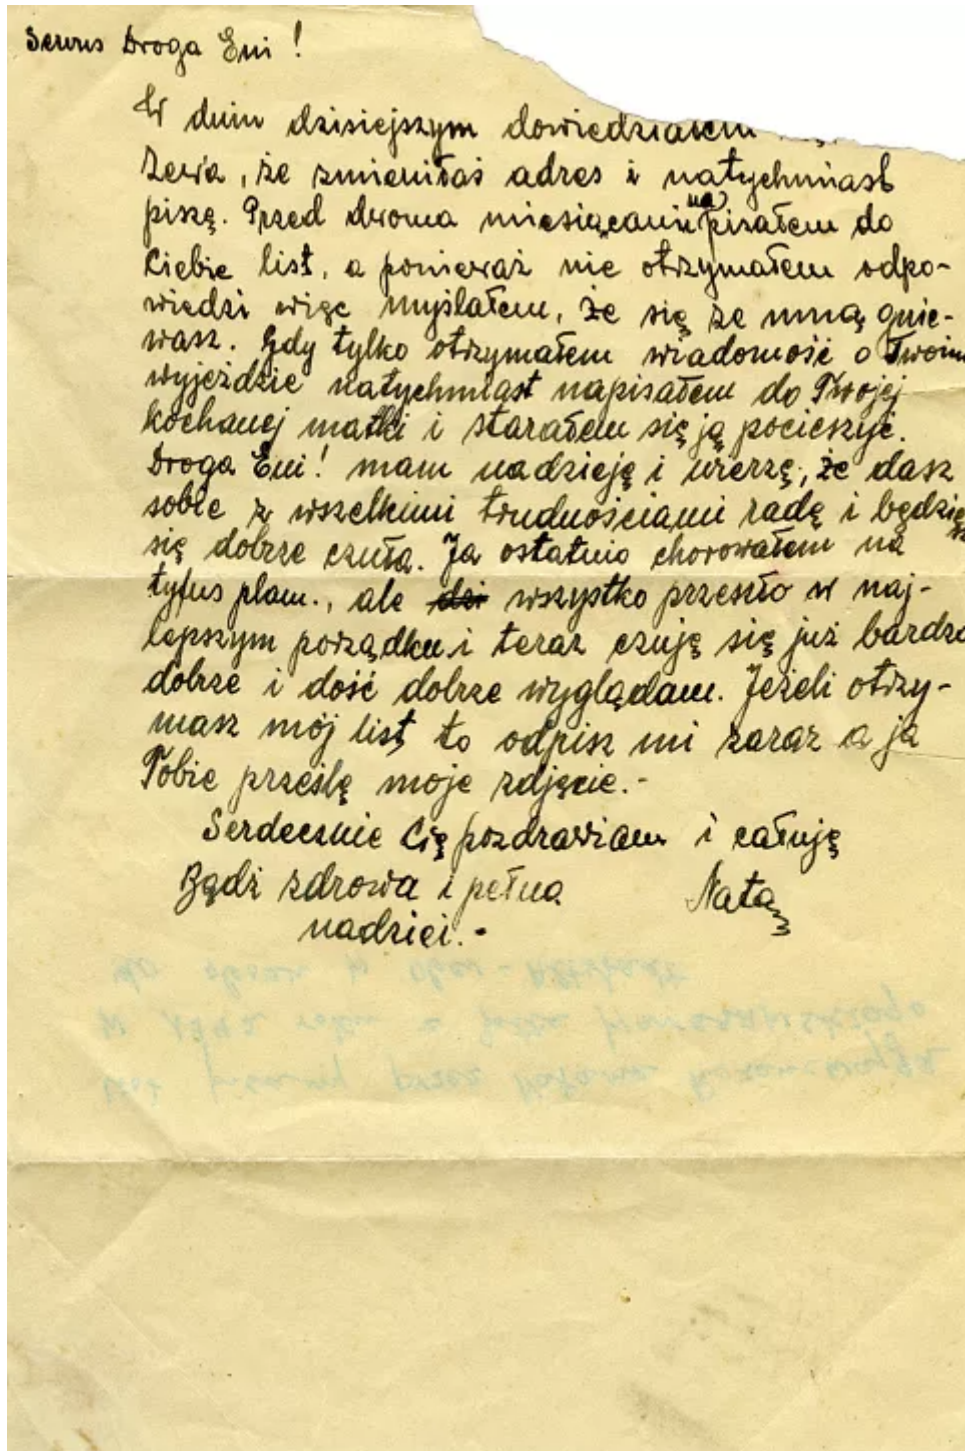 Serwus Droga Eni!
W dniu dzisiejszym dowiedziałem
Zewa, że zmieniłaś adres i natychmiast
piszę. Przed dwoma miesiącami napisałem do
Ciebie list, a ponieważ nie otrzymałem odpo-
wiedzi więc myślałem, że się ze mną gnie-
wasz. Gdy tylko otrzymałem wiadomość o Twoim
wyjeździe natychmiast napisałem do Twojej
kochanej matki i starałem się ją pocieszyć.
Droga Eni! mam nadzieję i wierzę, że dasz
sobie z wszelkimi trudnościami radę i będziesz
się dobrze czuła. Ja ostatnio chorowałem na
tyfus plam., ale wszystko przeszło w naj-
lepszym porządku i teraz czuję się już bardzo
dobrze i dość dobrze wyglądam. Jeżeli otrzy-
masz mój list, to odpisz mi zaraz a ja
Tobie prześlę moje zdjęcie.-
Serdecznie Cię pozdrawiam i całuję
Bądź zdrowa i pełna Natan
nadziei.-